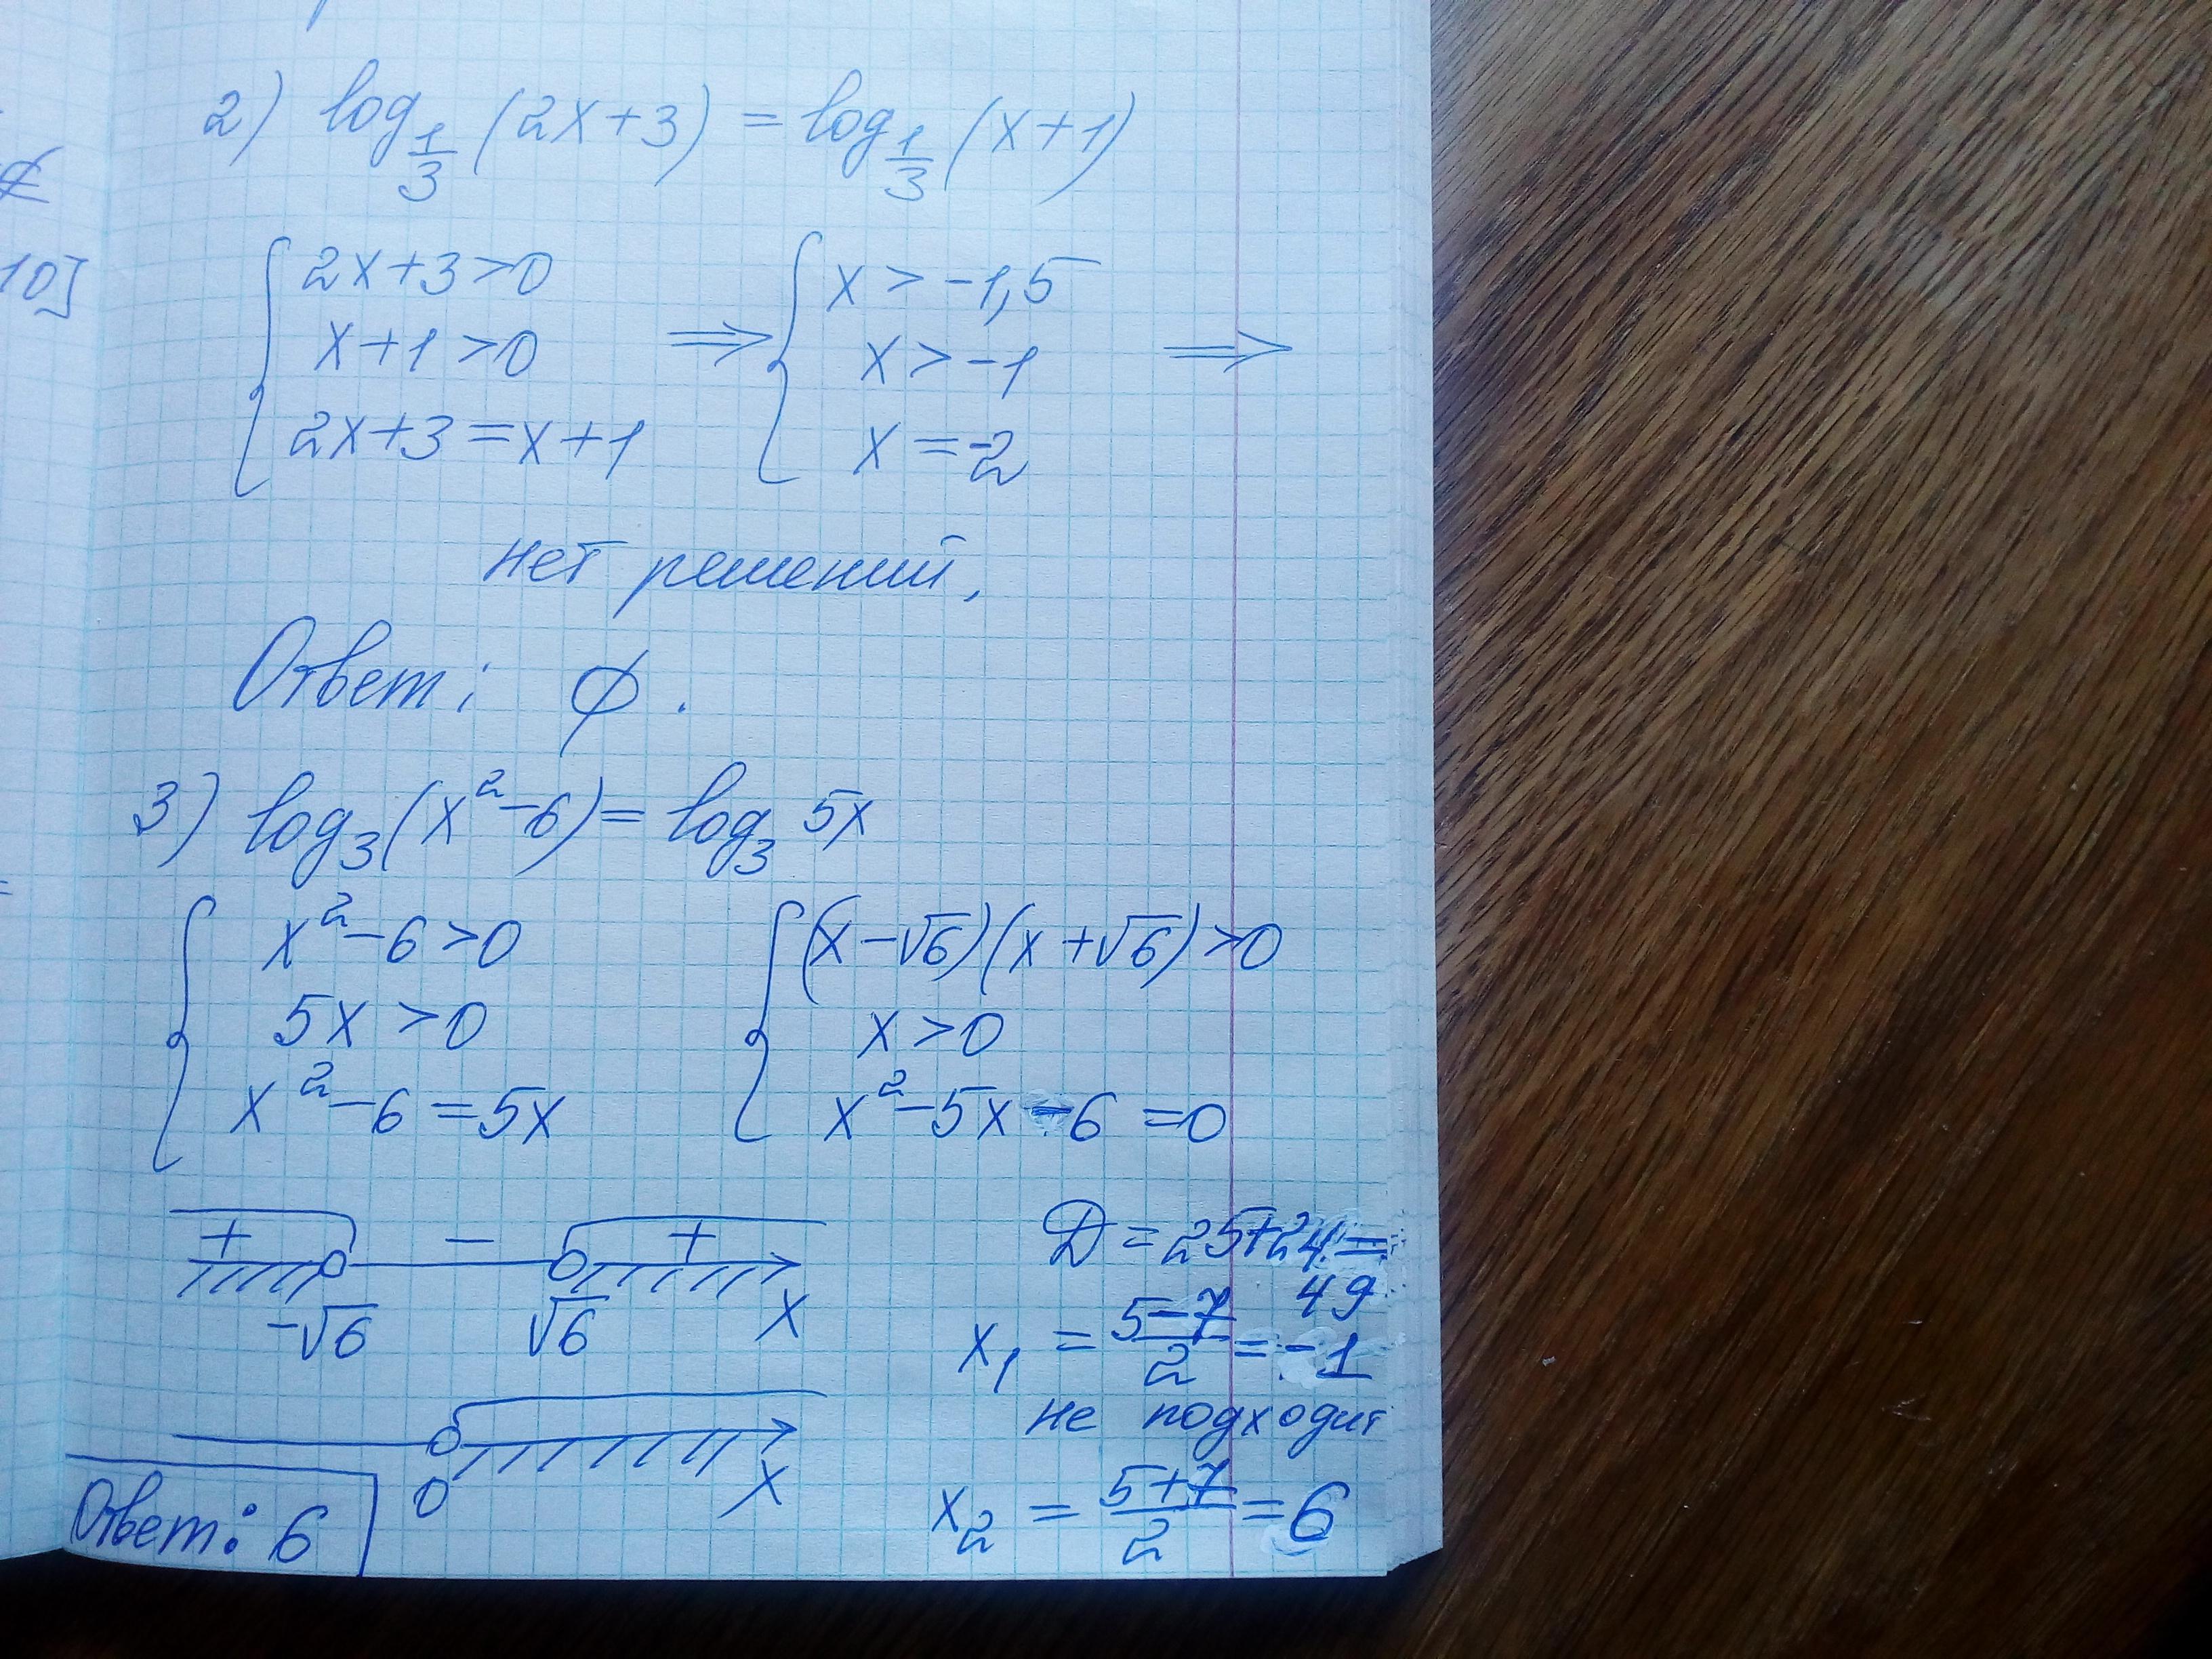 2) log_{1/3} (2x+3) = log_{1/3} (x+1)
{ 2x+3>0
x+1>0
2x+3=x+1
⟹
{ x > -1,5
x > -1
x = -2
⟹
нет решений.
Ответ: ∅.
10]
3) log₃(x²-6) = log₃ 5x
{ x²-6>0
5x >0
x²-6=5x
{ (x-√6)(x+√6)>0
x>0
x²-5x-6=0
+ - +
-√6 √6 x
0 x
Д = 25+24=
49
x₁ = (5-7)/2 = -1
не подходит
x₂ = (5+7)/2 = 6
Ответ: 6